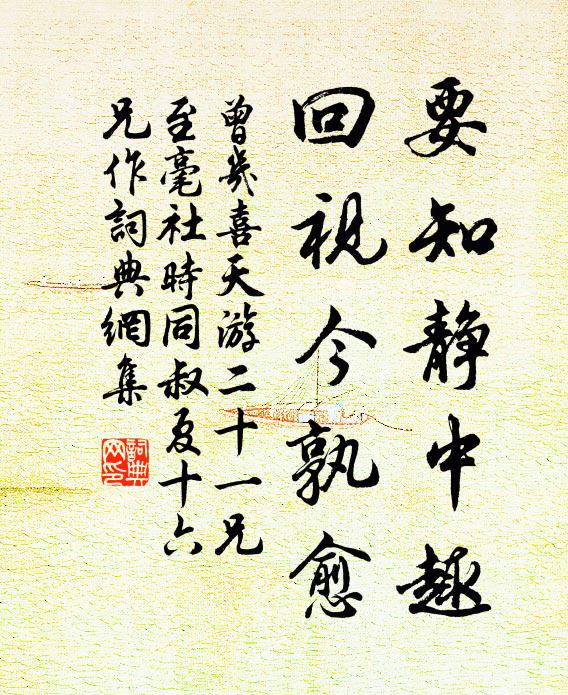 要知静中趣
回视今孰愈
曾幾喜天游二十一兄
至毫社時同叔夏十六
兄作詞典網集
詞典网印